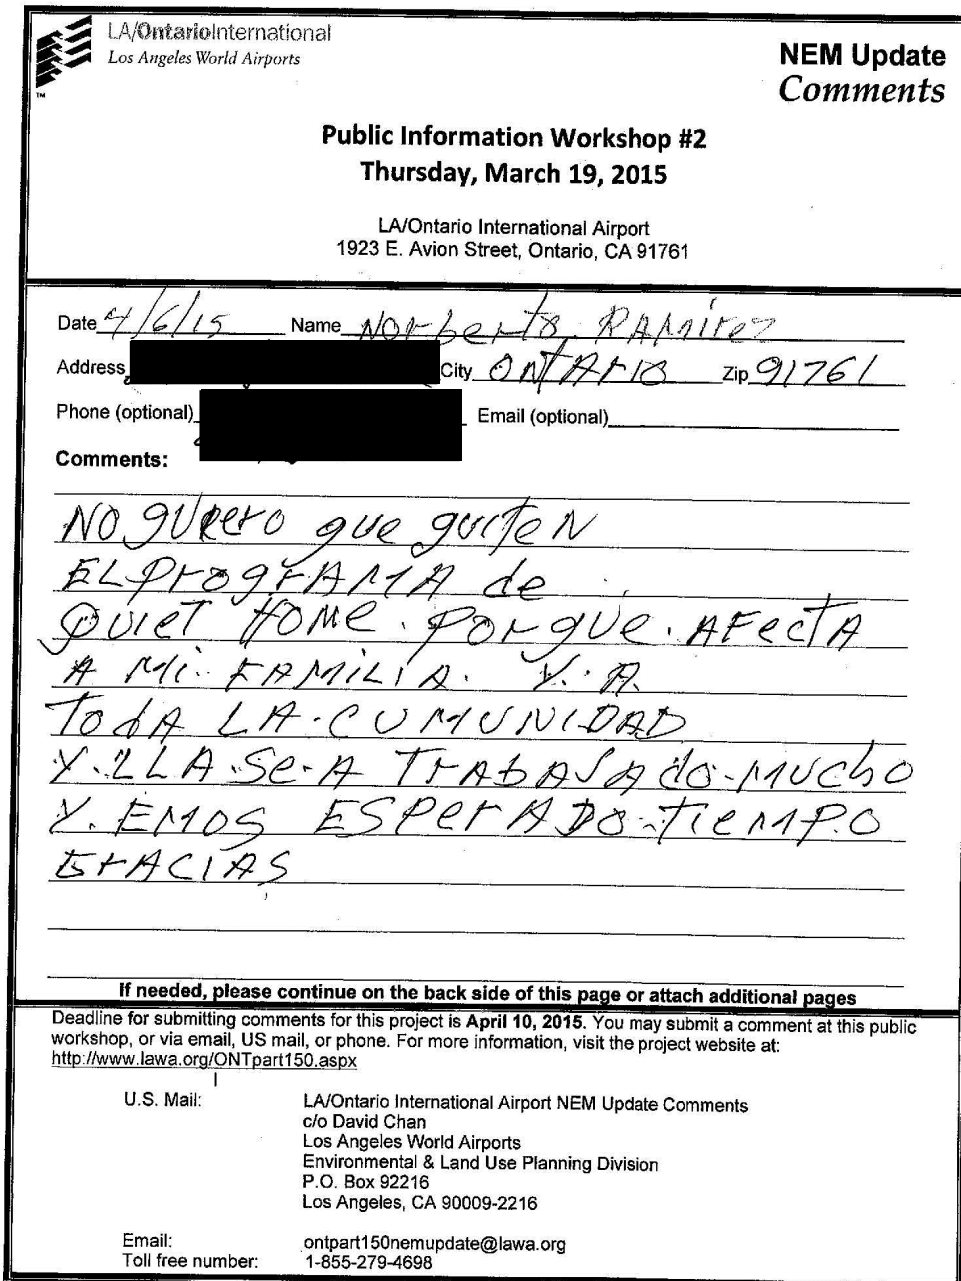 LA/OntarioInternational
Los Angeles World Airports
TM
NEM Update
Comments
Public Information Workshop #2
Thursday, March 19, 2015
LA/Ontario International Airport
1923 E. Avion Street, Ontario, CA 91761
Date 4/6/15 Name Norberto RAMirez
Address City ONTArio Zip 91761
Phone (optional) Email (optional)
Comments:
NO qUiero que quiteN
EL ProgrAMA de
QUIET HOME. Porque. AFectA
A Mi. FAMILIA. Y. A.
TodA LA. CUMUNIDAD
Y. LLA. Se. A TrAbAJAdo. MUcho
Y. EMOS ESPerADo. TieMPO
GrACIAS
If needed, please continue on the back side of this page or attach additional pages
Deadline for submitting comments for this project is April 10, 2015. You may submit a comment at this public
workshop, or via email, US mail, or phone. For more information, visit the project website at:
http://www.lawa.org/ONTpart150.aspx
U.S. Mail: LA/Ontario International Airport NEM Update Comments
c/o David Chan
Los Angeles World Airports
Environmental & Land Use Planning Division
P.O. Box 92216
Los Angeles, CA 90009-2216
Email: ontpart150nemupdate@lawa.org
Toll free number: 1-855-279-4698